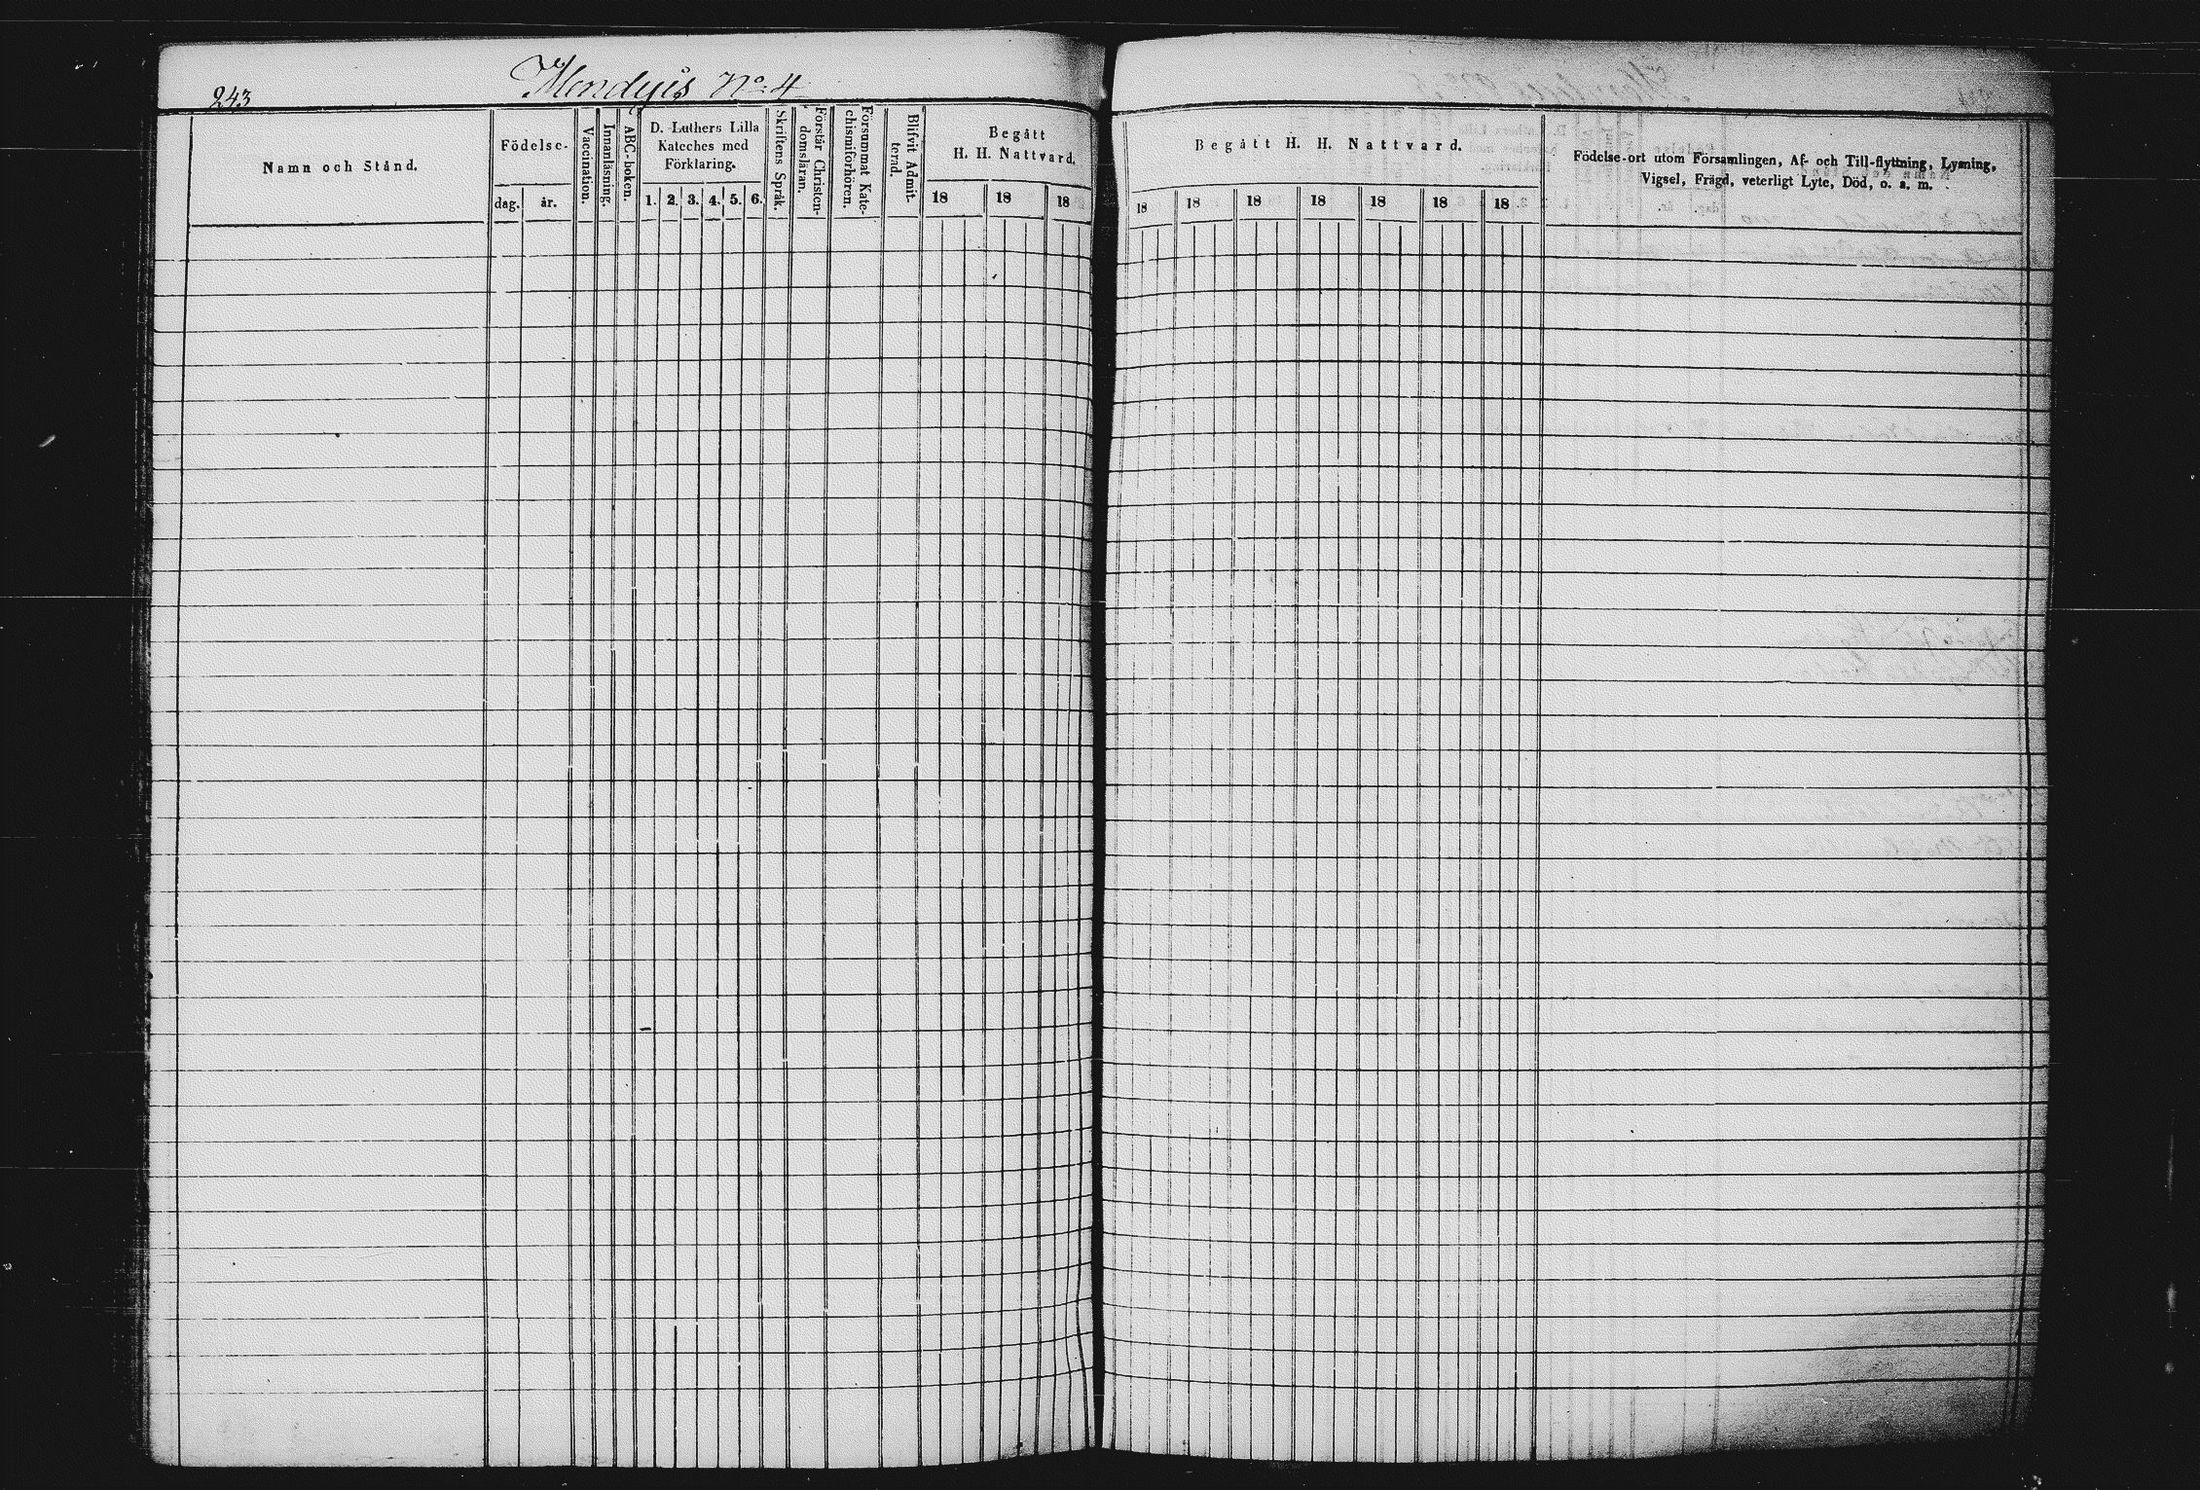 243
Mendyis No 4
Namn och Stånd.
Födelse-
dag.
år.
Vaccination.
Innanläsning.
ABC-boken.
D. Luthers Lilla
Kateches med
Förklaring.
1. 2. 3. 4. 5. 6.
Skriftens Språk.
Förstår Christen-
domsläran.
Försummat Kate-
chismiförhören.
Blifvit Admit-
terad.
Begått
H. H. Nattvard.
18 18 18
Begått H. H. Nattvard.
18 18 18 18 18 18 18
Födelse-ort utom Församlingen, Af- och Till-flyttning, Lysning,
Vigsel, Frägd, veterligt Lyte, Död, o. s. m.